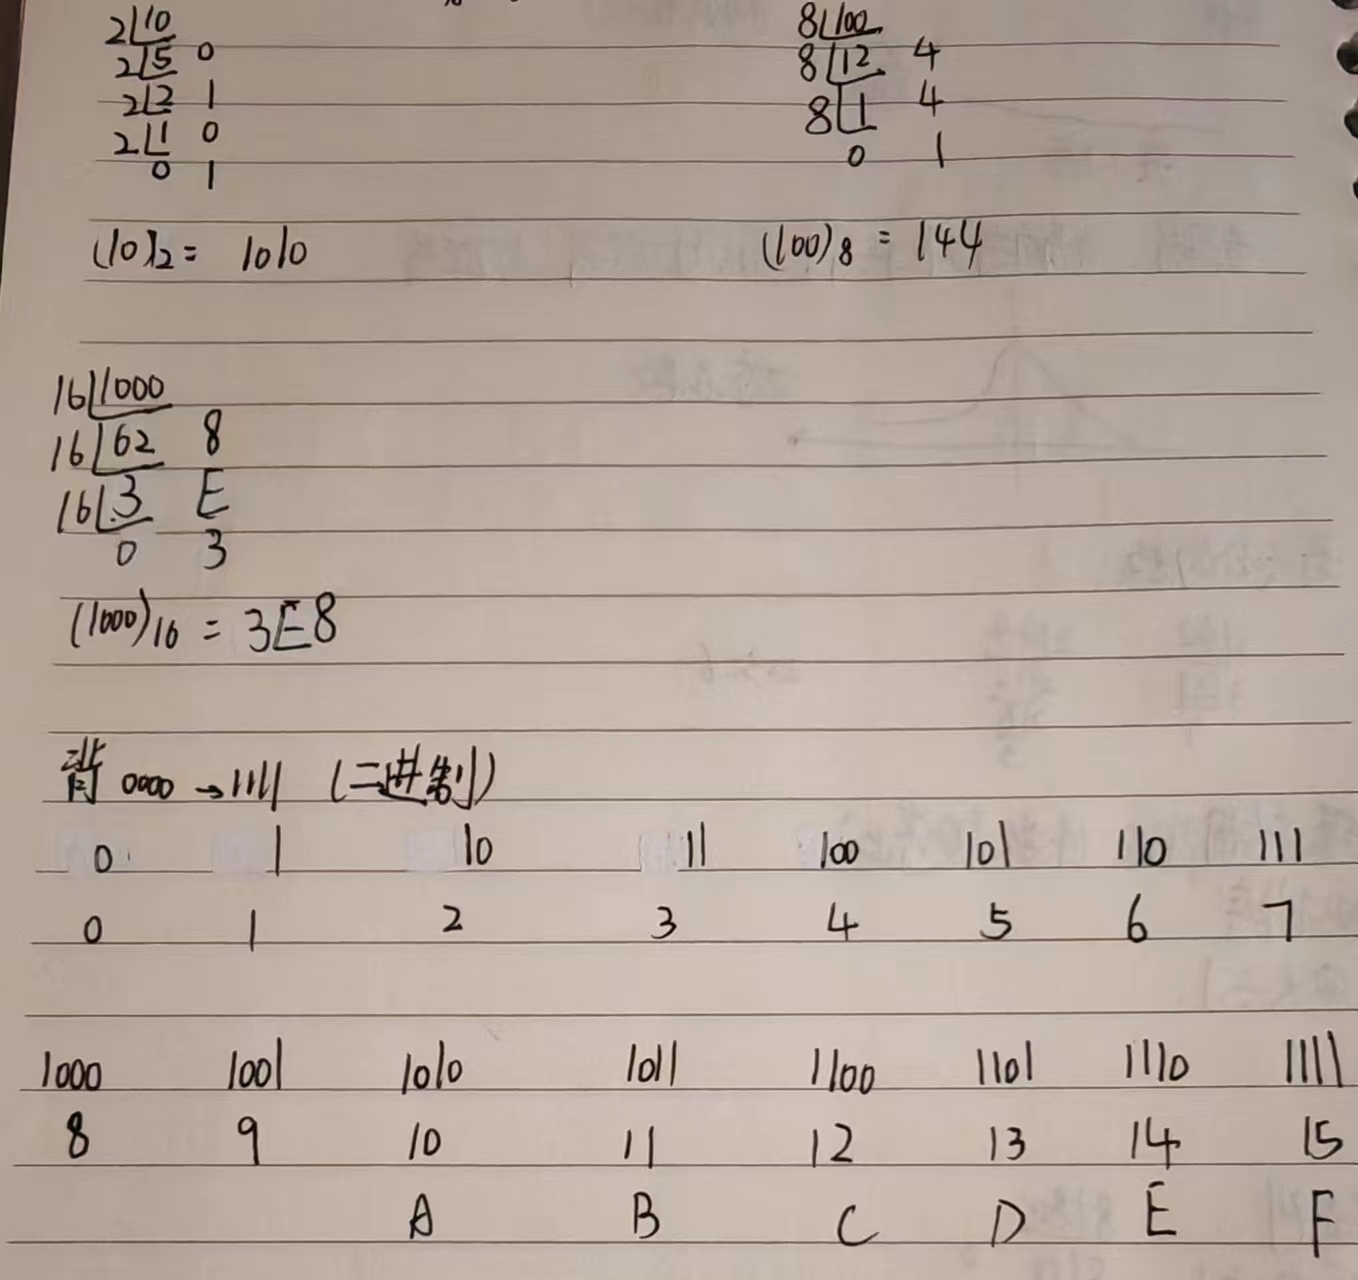 2 10
2 5 0
2 2 1
2 1 0
0 1
(10)2 = 1010
8 100
8 12 4
8 1 4
0 1
(100)8 = 144
16 1000
16 62 8
16 3 E
0 3
(1000)16 = 3E8
背 0000 → 1111 (二进制)
0 1 10 11 100 101 110 111
0 1 2 3 4 5 6 7
1000 1001 1010 1011 1100 1101 1110 1111
8 9 10 11 12 13 14 15
A B C D E F